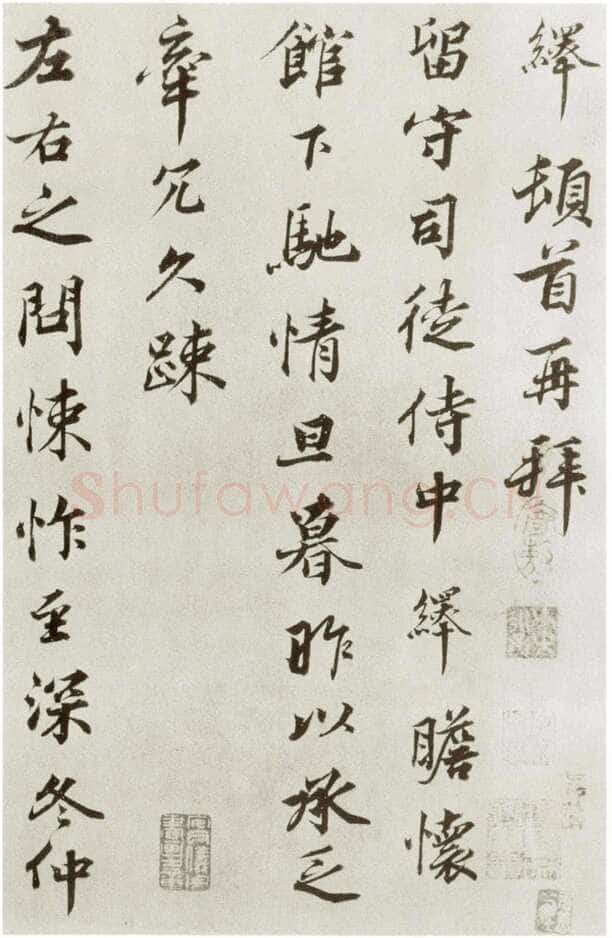 繹頓首再拜
留守司徒侍中繹瞻懷
館下馳情旦暮昨以承乏
牽冗久踈
左右之問悚怍至深冬仲
Shufawang.cn